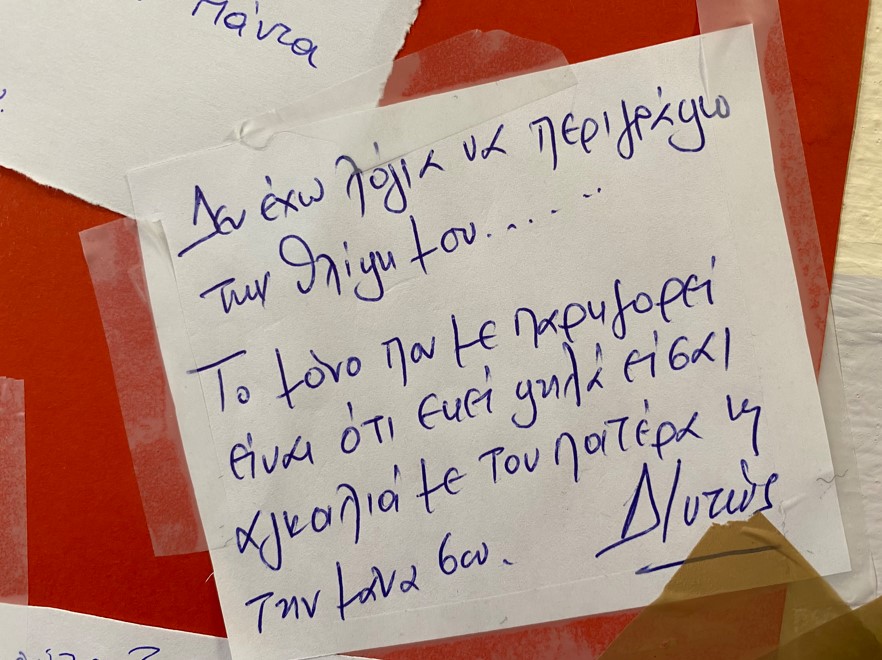 πάντα
Δεν έχω λόγια να περιγράψω
την θλίψη μου.......
Το μόνο που με παρηγορεί
είναι ότι εκεί ψηλά είσαι
αγκαλιά με τον πατέρα κ
την μάνα σου.
Δ/ντεύς